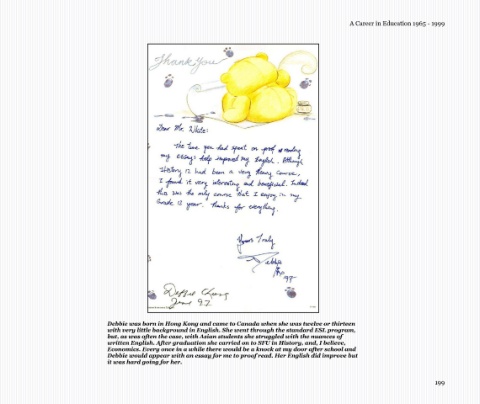 A Career in Education 1965 - 1999
Thank You
Dear Mr. White:
The time you had spent on proof reading
my essays help improved my English. Although
History 12 had been a very heavy course,
I found it very interesting and beneficial. Indeed
this was the only course that I enjoy in my
Grade 12 year. Thanks for everything.
Yours Truly,
Debbie
97
Chung
June 97
Debbie was born in Hong Kong and came to Canada when she was twelve or thirteen
with very little background in English. She went through the standard ESL program,
but, as was often the case, with Asian students she struggled with the nuances of
written English. After graduation she carried on to SFU in History, and, I believe,
Economics. Every once in a while there would be a knock at my door after school and
Debbie would appear with an essay for me to proof read. Her English did improve but
it was hard going for her.
199